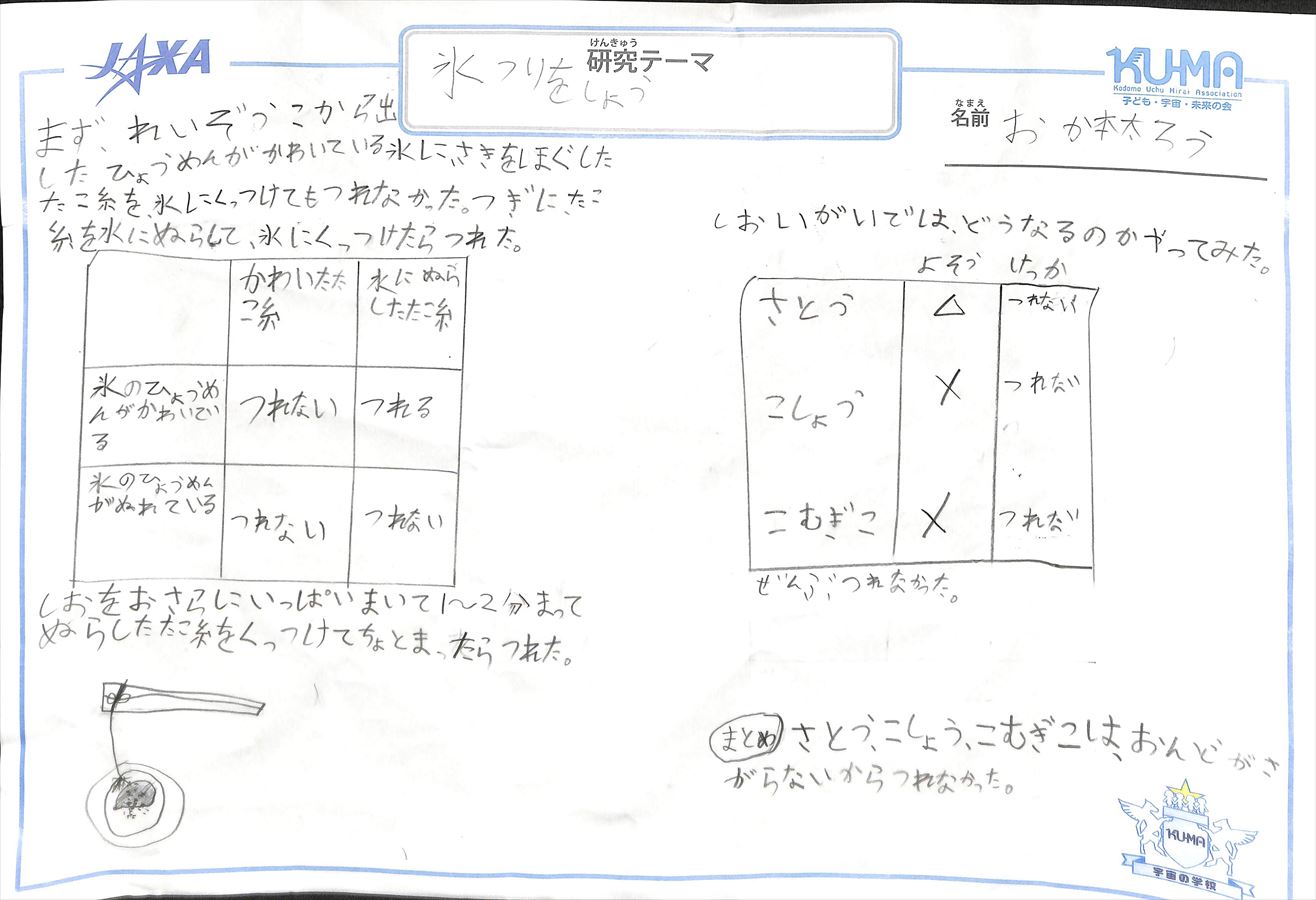 JAXA
けんきゅう
研究テーマ
氷つりをしよう
KU-MA
Kodomo Uchu Mirai Association
子ども・宇宙・未来の会
なまえ
名前
おか本太ろう
まず、れいぞうこから出
した ひょうめんがかわいている氷に、さきをほぐした
たこ糸を、氷にくっつけてもつれなかった。つぎに、たこ
糸を水にぬらして、氷にくっつけたらつれた。
かわいたた
こ糸
水にぬら
したたこ糸
氷のひょうめ
んがかわいてい
る
つれない
つれる
氷のひょうめん
がぬれている
つれない
つれない
しおをおさらにいっぱいまいて1〜2分まって
ぬらしたたこ糸をくっつけてちょとまったらつれた。
しおいがいでは、どうなるのかやってみた。
よそう
けっか
さとう
△
つれない
こしょう
×
つれない
こむぎこ
×
つれない
ぜんぶつれなかった。
まとめ さとう、こしょう、こむぎこは、おんどがさ
がらないからつれなかった。
KU-MA
宇宙の学校